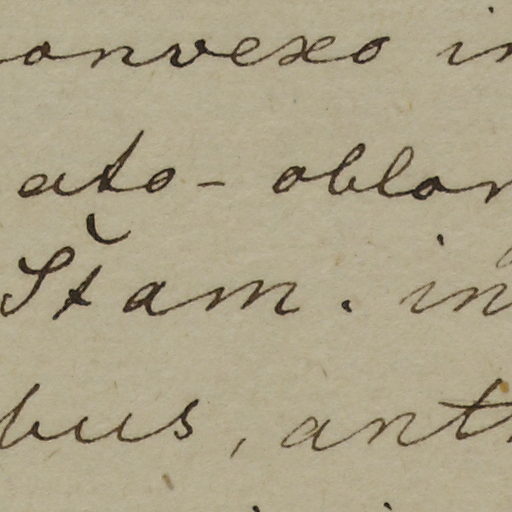 onvexo in
ato-oblon
Stam. in
bus, anth